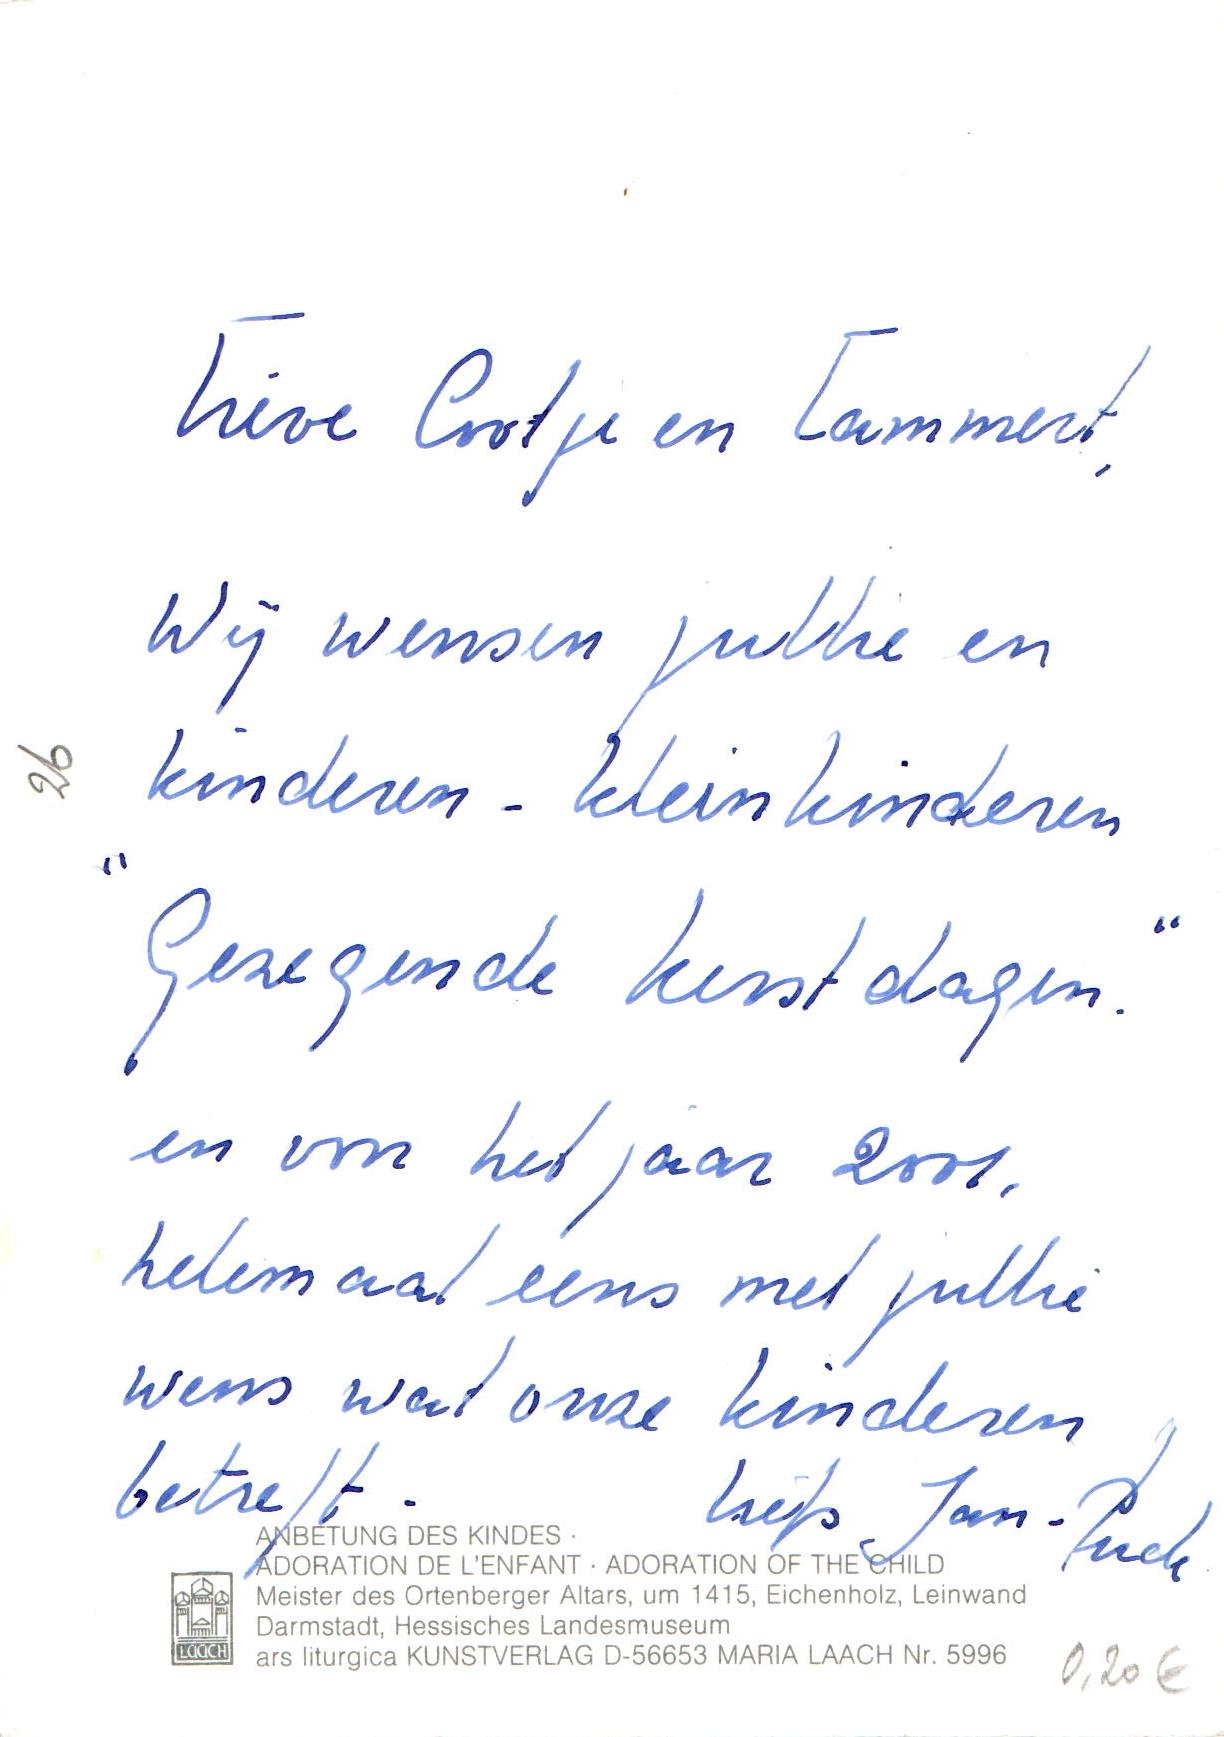 Lieve Cootje en Lammert,
Wij wensen jullie en
kinderen - kleinkinderen
"Gezegende kerstdagen."
en voor het jaar 2001,
helemaal eens met jullie
wens wat onze kinderen
betreft. liefs, Jan-Puck
ANBETUNG DES KINDES ·
ADORATION DE L'ENFANT · ADORATION OF THE CHILD
Meister des Ortenberger Altars, um 1415, Eichenholz, Leinwand
Darmstadt, Hessisches Landesmuseum
ars liturgica KUNSTVERLAG D-56653 MARIA LAACH Nr. 5996
LAACH
0,20 €
26